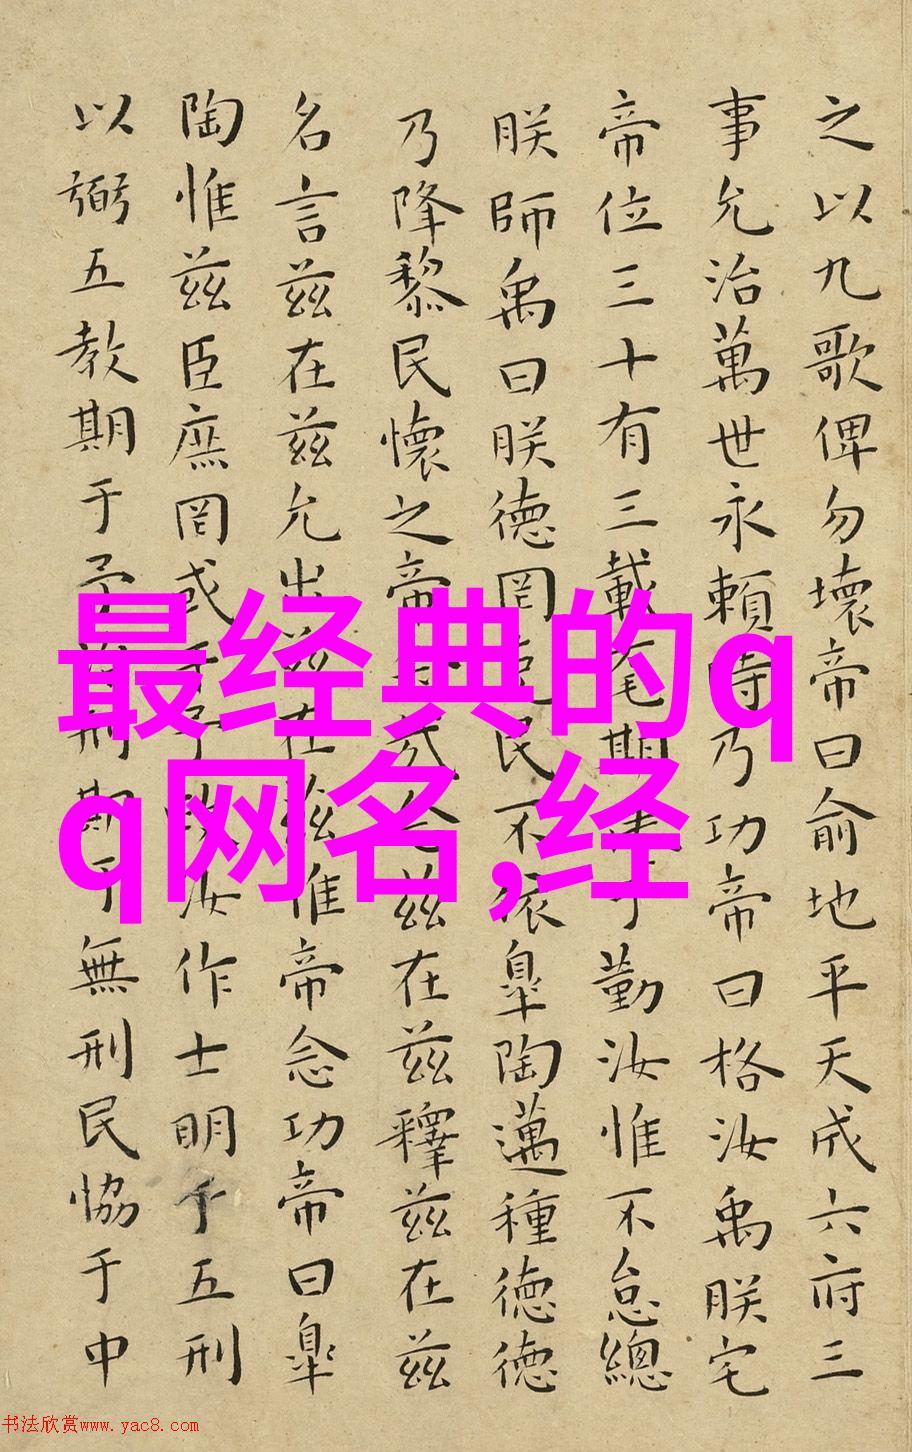 之以九歌俾勿壞帝曰俞地平天成六府三
事允治萬世永賴時乃功帝曰格汝禹朕宅
帝位三十有三載耄期于勤汝惟不怠總
朕師禹曰朕德罔克民不依皋陶邁種德德
乃降黎民懷之帝念哉念茲在茲釋茲在茲
名言茲在茲允出茲在茲惟帝念功帝曰皋
陶惟茲臣庶罔或干予政汝作士明于五刑
以弼五教期于予刑期于無刑民協于中
最经典的q
q网名,经
书法欣赏www.yac8.com